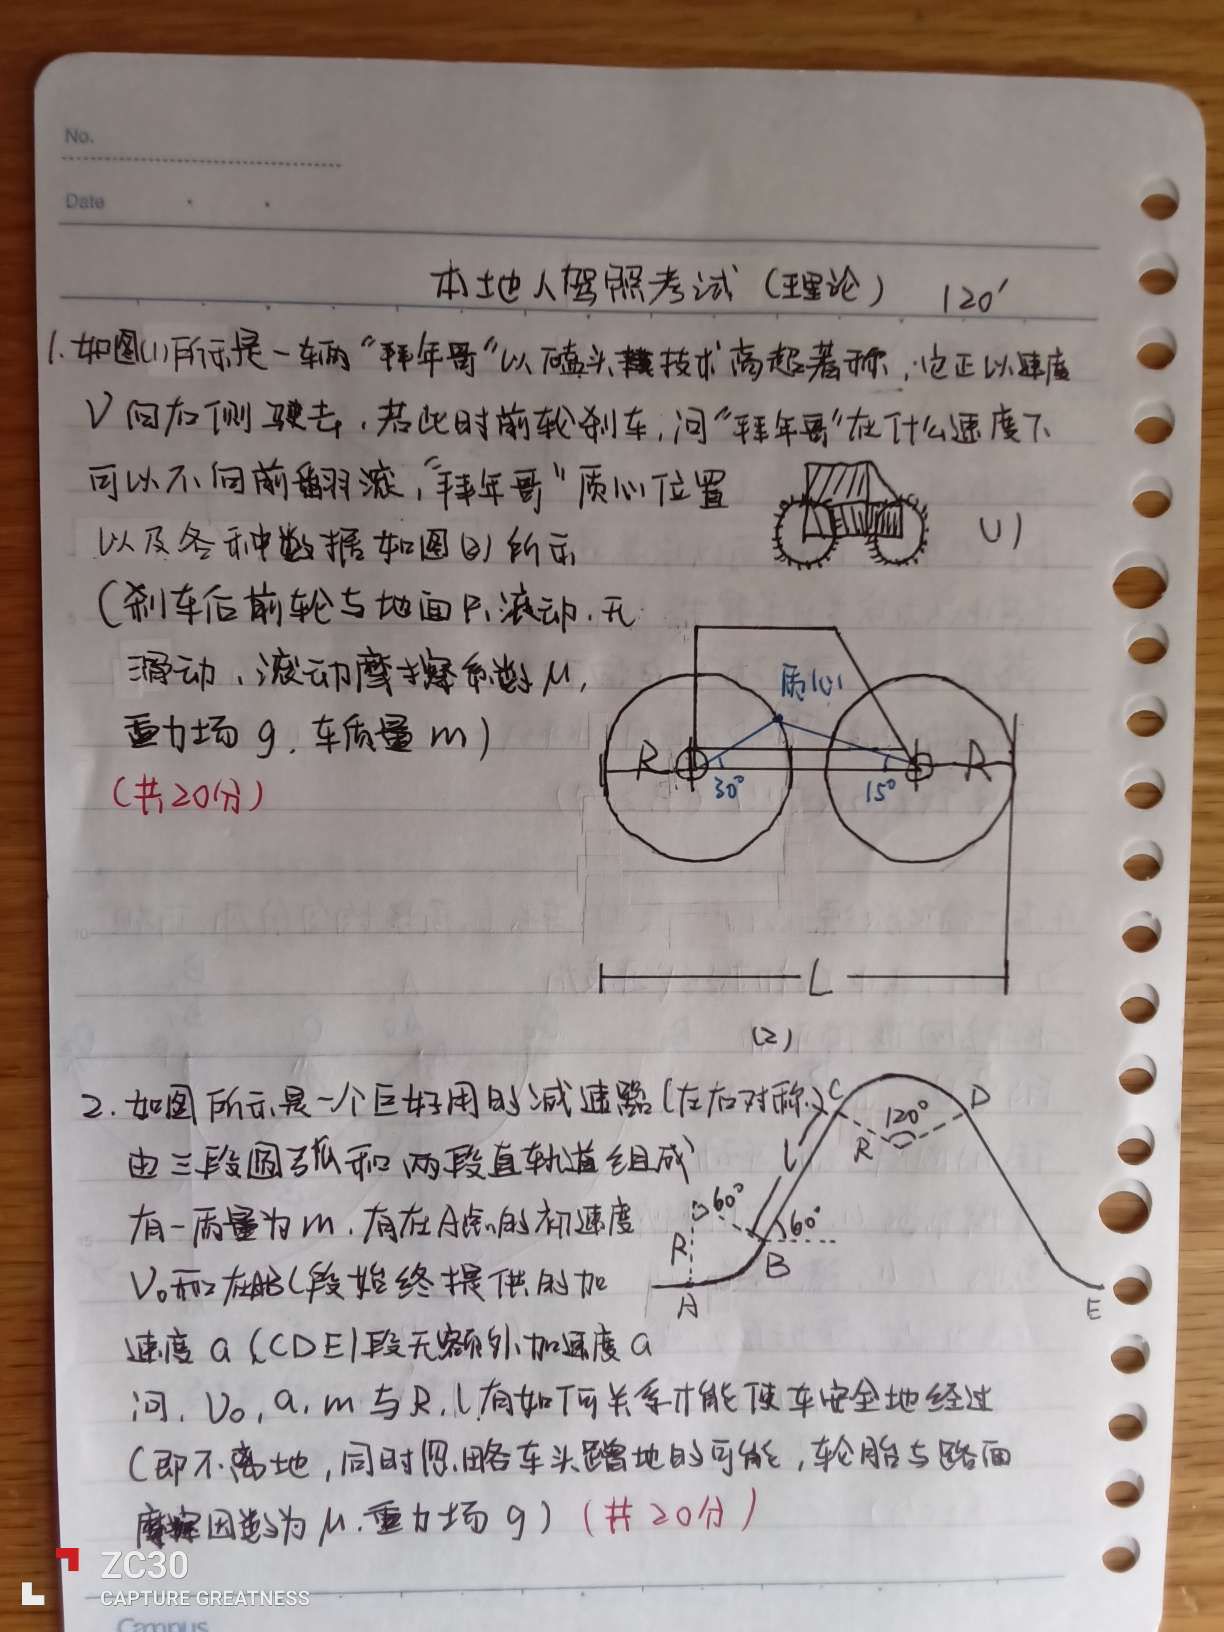 No.
Date
本地人驾照考试（理论） 120'
1. 如图(1)所示是一车两“拜年哥”以磕头技术高超著称，它正以速度
V向右侧驶去，若此时前轮刹车，问“拜年哥”在什么速度下
可以不向前翻滚，“拜年哥”质心位置
以及各种数据如图(2)所示
(刹车后前轮与地面只滚动，无
滑动，滚动摩擦系数μ，
重力场g，车质量m)
(共20分)
(1)
质心
R 30° 15° R
L
(2)
2. 如图所示是一个巨好用的减速器(左右对称)
由三段圆弧和两段直轨道组成
有一质量为m，有在A点的初速度
V₀和在ABC段始终提供的加
速度a (CDE)段无额外加速度a
问，V₀，a，m与R，l有如何关系才能使车安全地经过
(即不离地，同时忽略各车头蹭地的可能，轮胎与路面
摩擦因数为μ，重力场g) (共20分)
C D
120°
R
l
60°
60°
R
B
A E
ZC30
CAPTURE GREATNESS
Campus